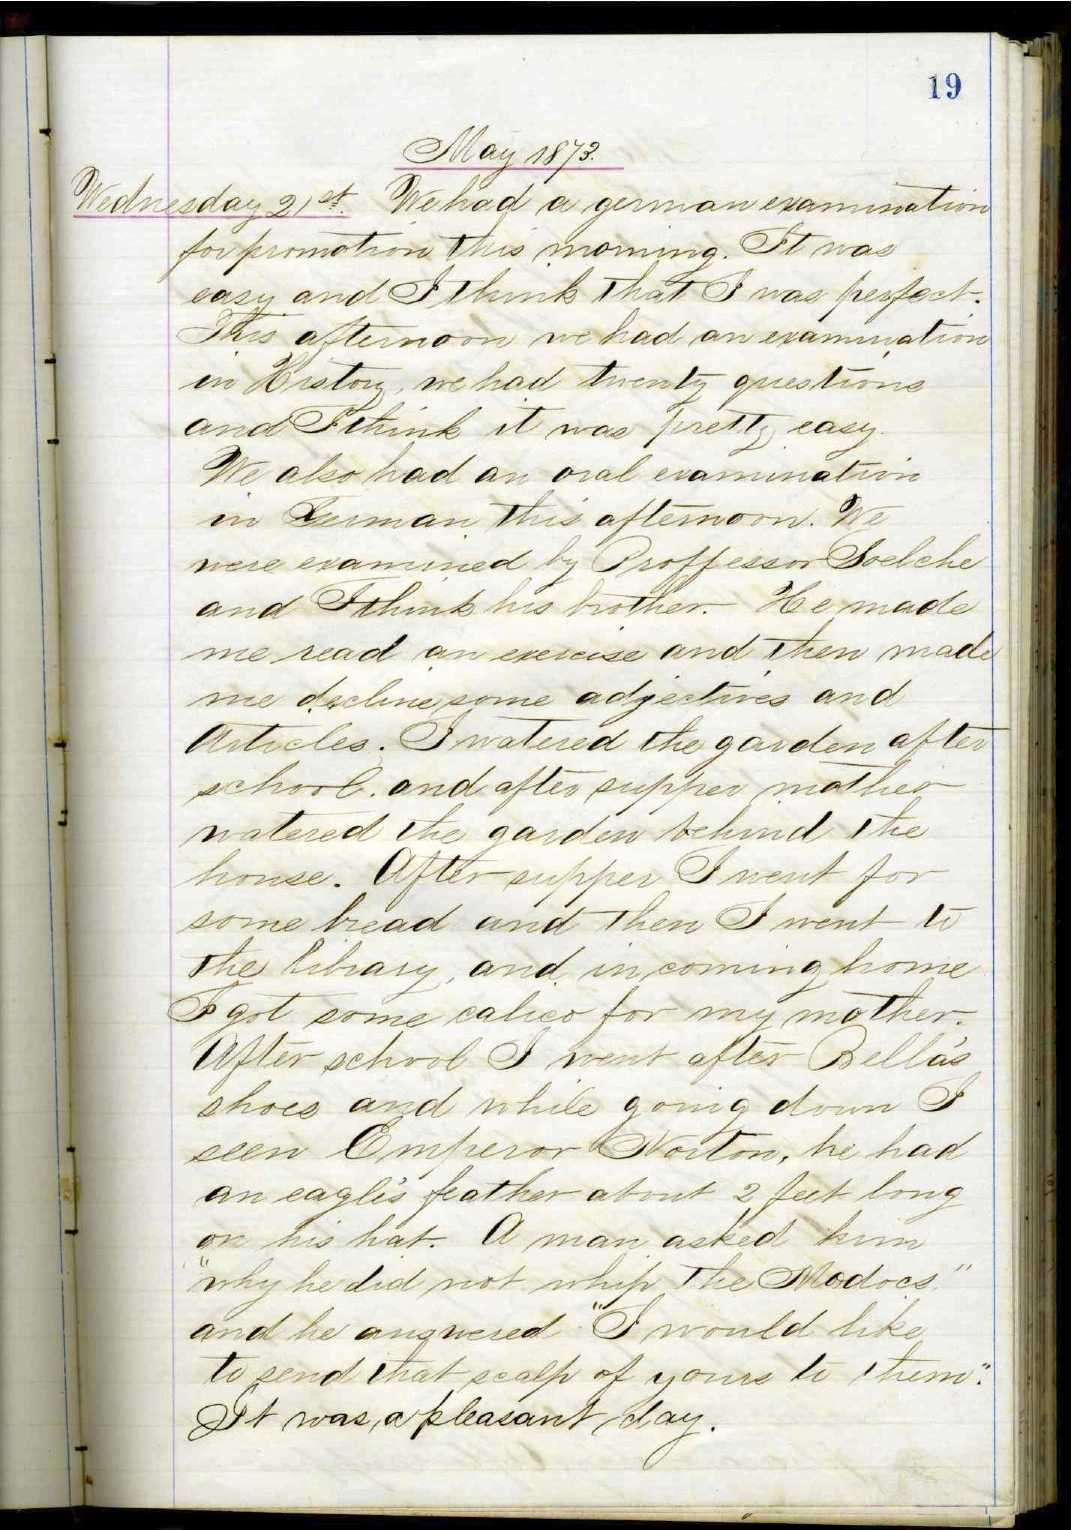 19
May 1873.
Wednesday 21st. We had a german examination
for promotion this morning. It was
easy and I think that I was perfect.
This afternoon we had an examination
in History, we had twenty questions
and I think it was pretty easy.
We also had an oral examination
in German this afternoon. We
were examined by Proffessor Soelche
and I think his brother. He made
me read an exercise and then made
me decline some adjectives and
Articles. I watered the garden after
school. and after supper mother
watered the garden behind the
house. After supper I went for
some bread and then I went to
the library, and in coming home
I got some calico for my mother.
After school I went after Bella's
shoes and while going down I
seen Emperor Norton, he had
an eagle's feather about 2 feet long
on his hat. A man asked him
"why he did not whip the Modocs"
and he answered "I would like
to send that scalp of yours to them".
It was a pleasant day.